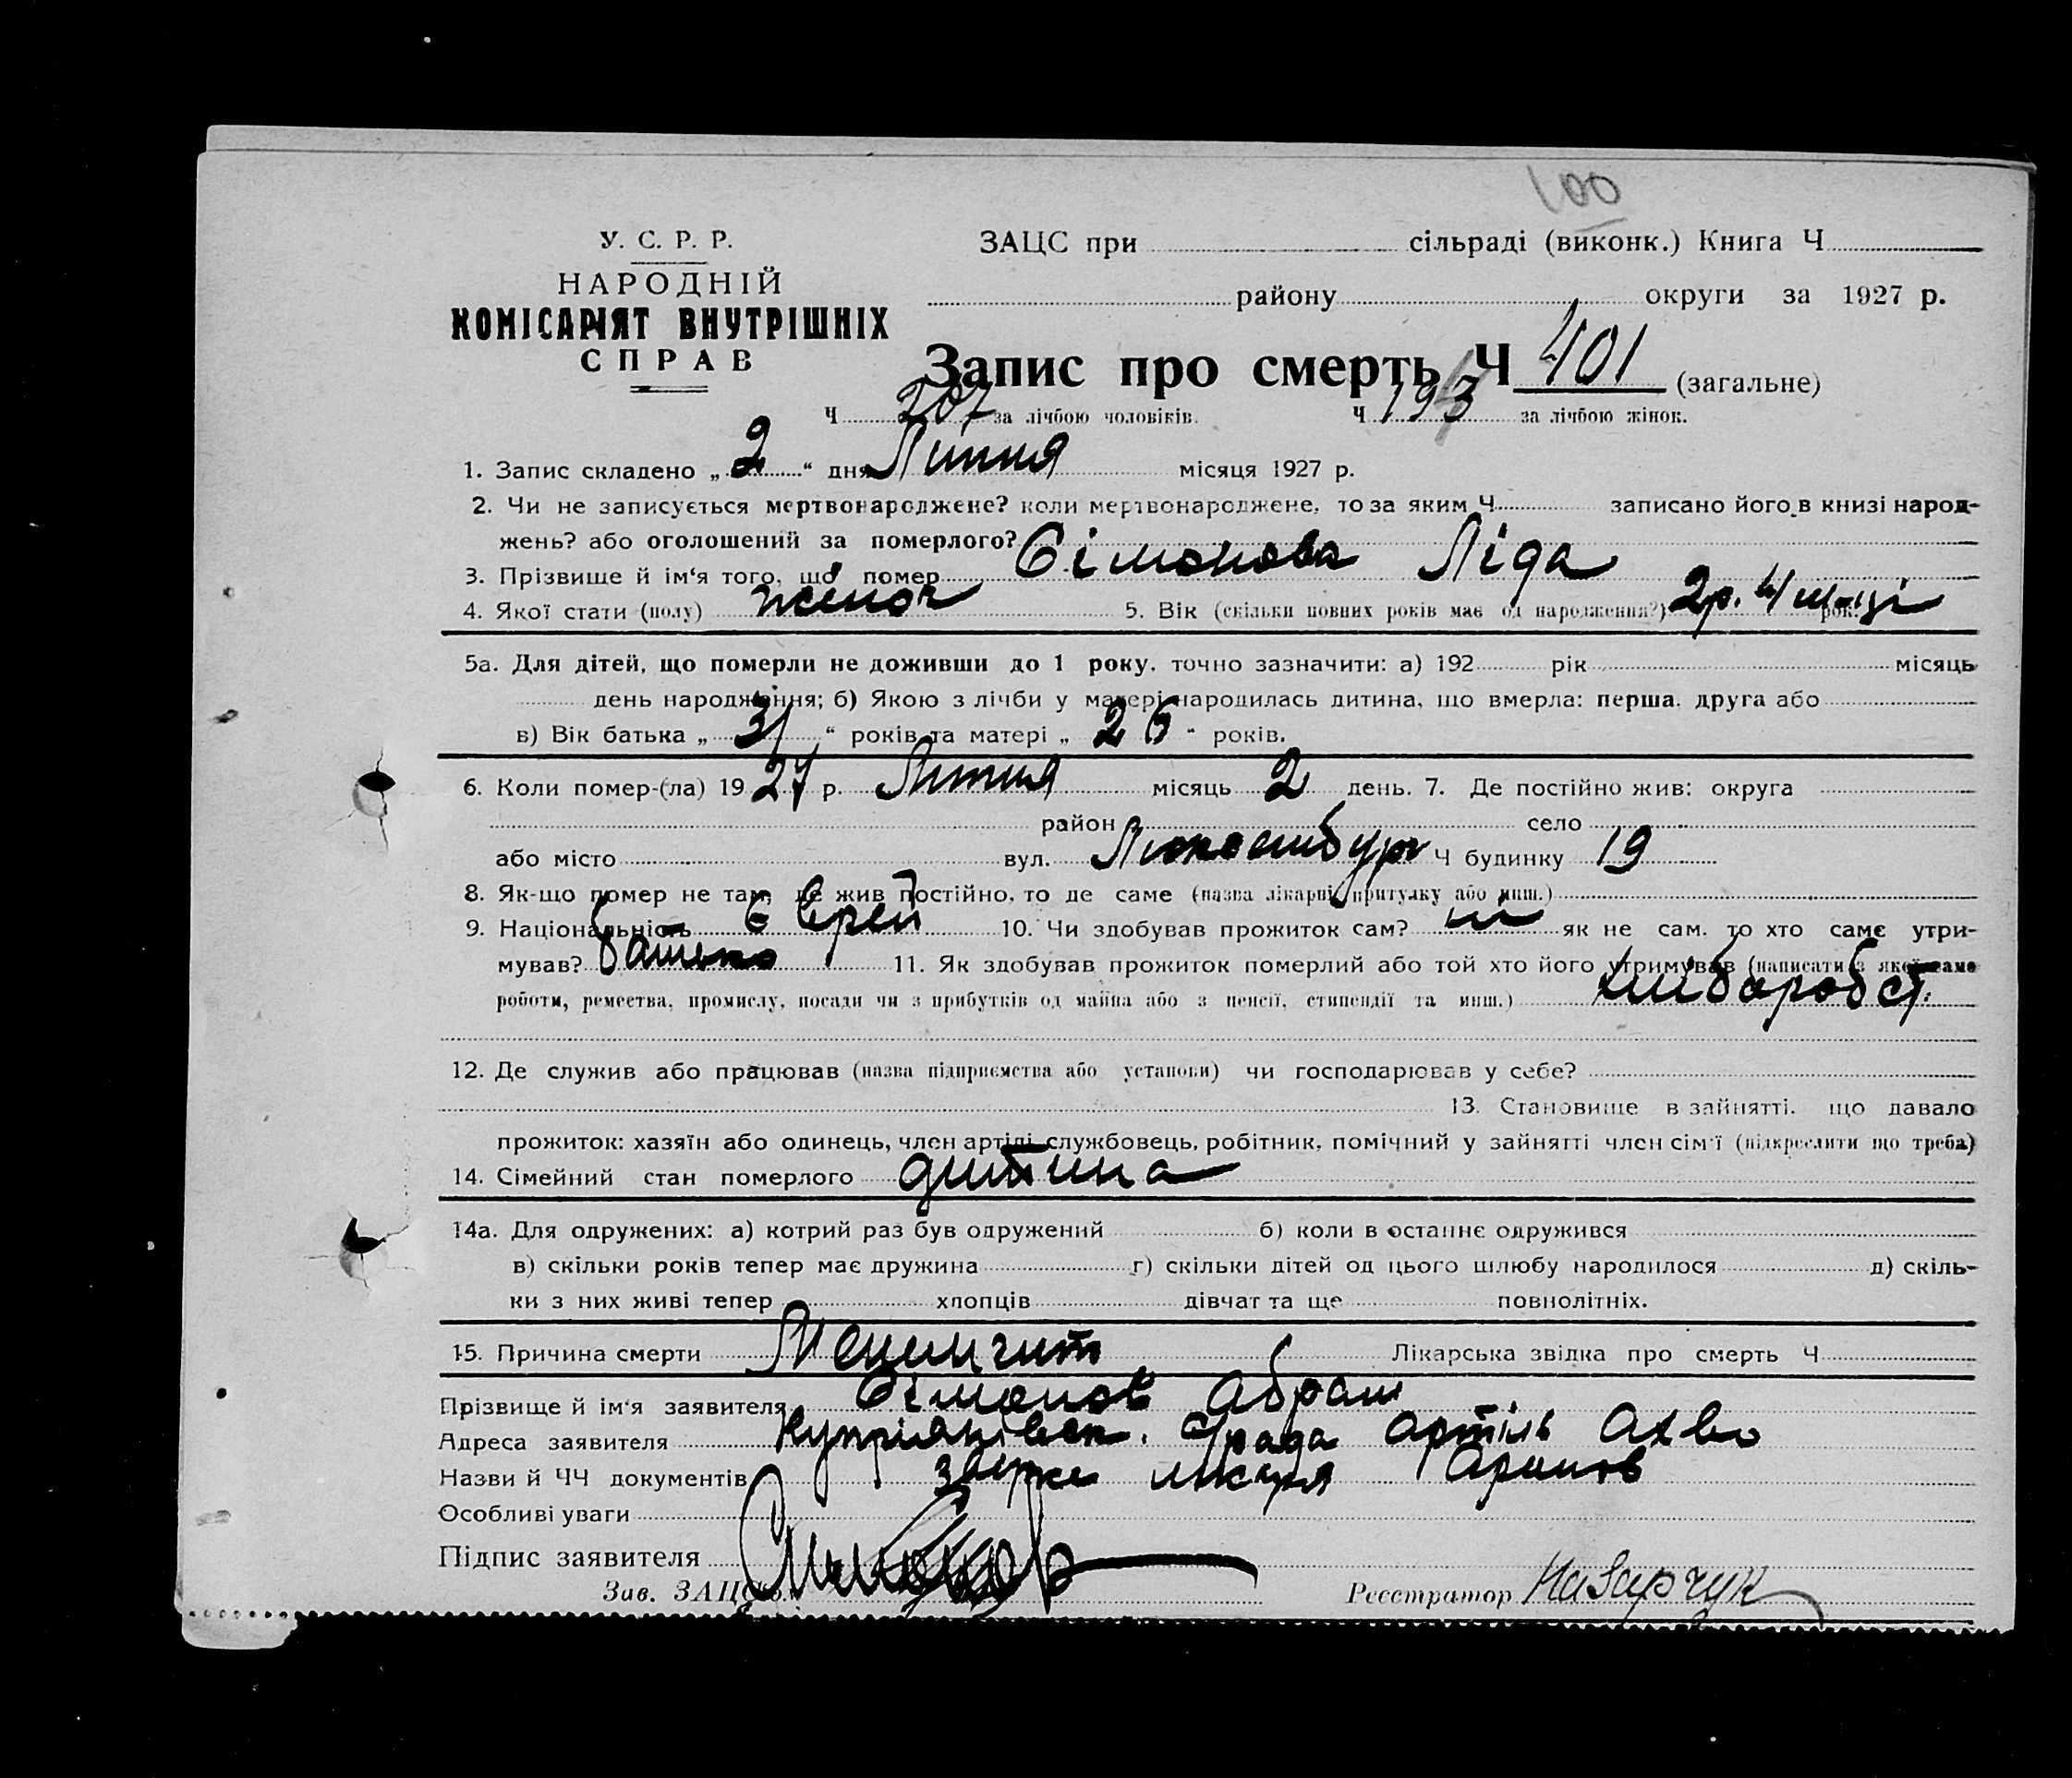 100
У. С. Р. Р.
НАРОДНІЙ
КОМІСАРІЯТ ВНУТРІШНІХ
СПРАВ
ЗАЦС при сільраді (виконк.) Книга Ч
району округи за 1927 р.
Запис про смерть Ч 401 (загальне)
Ч 207 за лічбою чоловіків. Ч 193 за лічбою жінок.
1. Запис складено „ 2 “ дня Липня місяця 1927 р.
2. Чи не записується мертвонароджене? коли мертвонароджене, то за яким Ч записано його в книзі народ-
жень? або оголошений за померлого?
3. Прізвище й ім‘я того, що помер Сімонова Ліда
4. Якої стати (полу) жіноч 5. Вік (скільки повних років має од народження?) 2р. 4 м-ці рок.
5а. Для дітей, що померли не доживши до 1 року, точно зазначити: а) 192 рік місяць
день народження; б) Якою з лічби у матері народилась дитина, що вмерла: перша, друга або
в) Вік батька „ 31 “ років та матері „ 26 “ років.
6. Коли помер-(ла) 19 27 р. Липня місяць 2 день. 7. Де постійно жив: округа
район село
або місто вул. Люксембург Ч будинку 19
8. Як-що помер не там, де жив постійно, то де саме (назва лікарні, притулку або инш.)
9. Національність Єврей 10. Чи здобував прожиток сам? ні як не сам, то хто саме утри-
мував? батько 11. Як здобував прожиток померлий або той хто його утримував (написати з якої саме
роботи, ремества, промислу, посади чи з прибутків од майна або з пенсії, стипендії та инш.) хліборобст.
12. Де служив або працював (назва підприємства або установи) чи господарював у себе?
13. Становище в зайнятті, що давало
прожиток: хазяїн або одинець, член артілі, службовець, робітник, помічний у зайнятті член сім‘ї (підкреслити що треба)
14. Сімейний стан померлого дитина
14а. Для одружених: а) котрий раз був одружений б) коли в останнє одружився
в) скільки років тепер має дружина г) скільки дітей од цього шлюбу народилося д) скіль-
ки з них живі тепер хлопців дівчат та ще повнолітніх.
15. Причина смерти Лікарська звідка про смерть Ч
Прізвище й ім‘я заявителя Сімонов Абрам
Адреса заявителя Купріянівськ. С/рада Артіль
Назви й ЧЧ документів лікаря
Особливі уваги
Підпис заявителя
Зав. ЗАЦС‘ом Реєстратор Назарчук